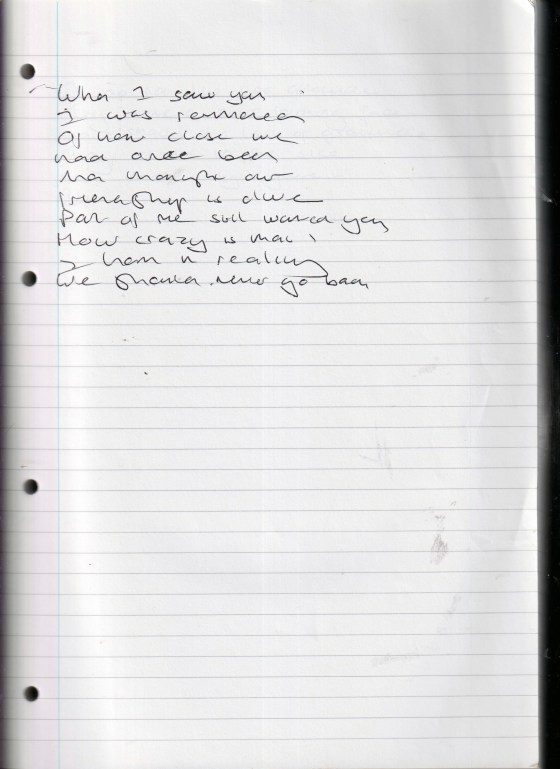 When I saw you
I was reminded
Of how close we
had once been
And though our
friendship is over
Part of me still wanted you
How crazy is that
I know in reality
We should never go back